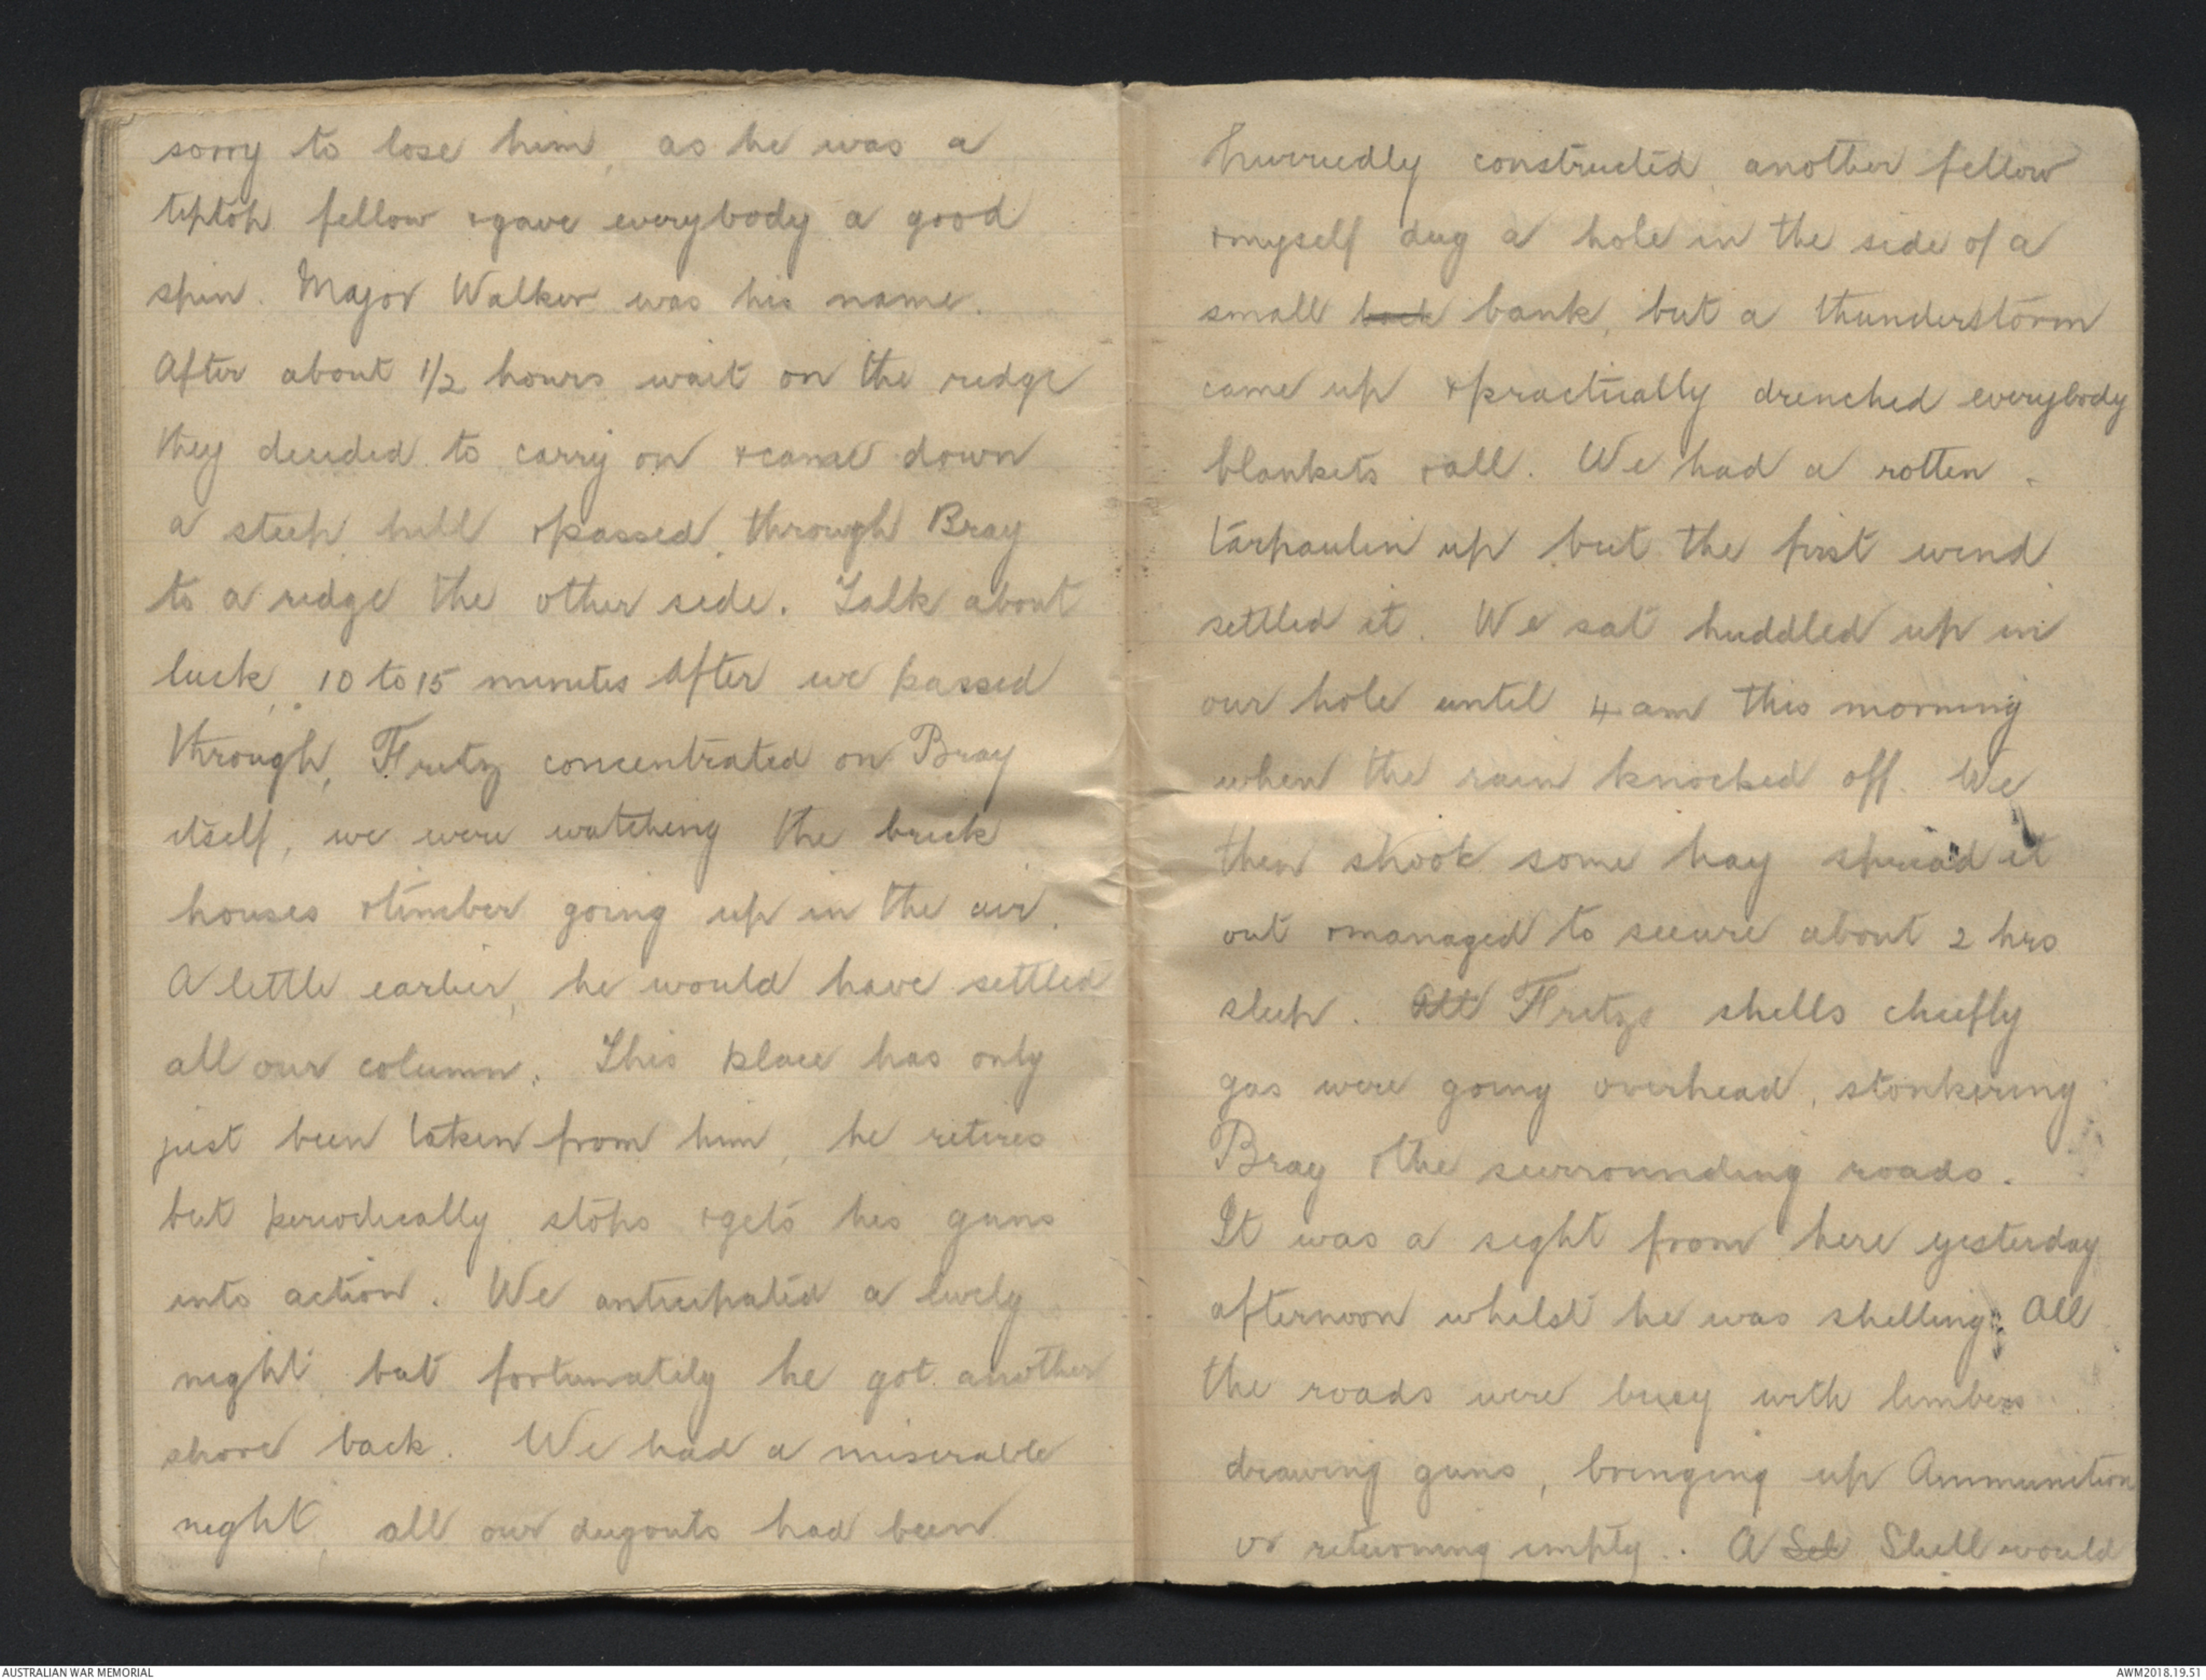 sorry to lose him, as he was a
tiptop fellow & gave everybody a good
spin. Major Walker was his name.
After about 1/2 hours wait on the ridge
they decided to carry on & came down
a steep hill & passed through Bray
to a ridge the other side. Talk about
luck, 10 to 15 minutes after we passed
through, Fritz concentrated on Bray
itself, we were watching the brick
houses & timber going up in the air.
A little earlier, he would have settled
all our column. This place has only
just been taken from him, he retires
but periodically stops & gets his guns
into action. We anticipated a lively
night, but fortunately he got another
shove back. We had a miserable
night, all our dugouts had been
hurriedly constructed, another fellow
& myself dug a hole in the side of a
small back bank, but a thunderstorm
came up & practically drenched everybody
blankets & all. We had a rotten
tarpaulin up but the first wind
settled it. We sat huddled up in
our hole until 4 am this morning
when the rain knocked off. We
then shook some hay spread it
out & managed to secure about 2 hrs
sleep. All Fritzs shells chiefly
gas were going overhead, stonkering
Bray & the surrounding roads.
It was a sight from here yesterday
afternoon whilst he was shelling. All
the roads were busy with limbers
drawing guns, bringing up Ammunition
or returning empty. A Sel Shell would
AUSTRALIAN WAR MEMORIAL
AWM2018.19.51